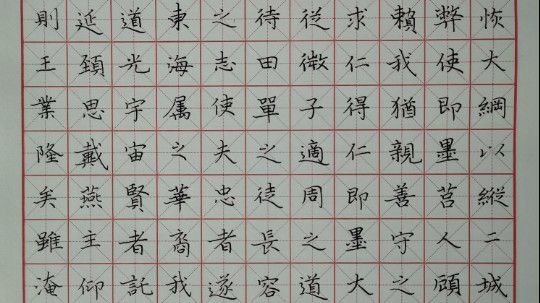 恢大綱以縱二城
弊使即墨莒人顧
賴我猶親善守之
求仁得仁即墨大
從微子適周之道
待田單之徒長容
之志使夫忠者遂
東海属之華裔我
道光宇宙賢者託
延頸思戴燕主仰
則王業隆矣雖淹